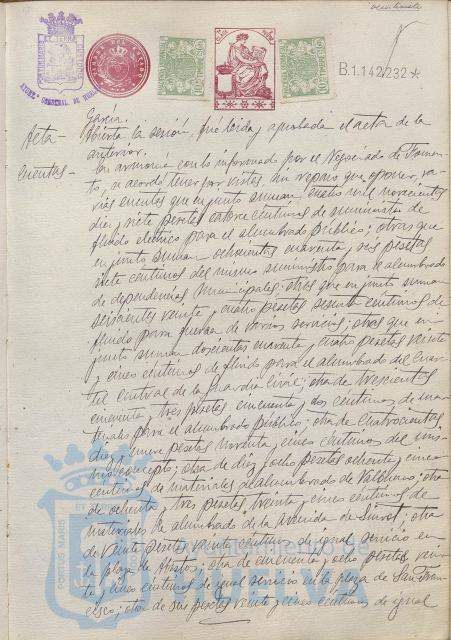 B.1.142.232*
García.
Acta - Abierta la sesión, fué leída y aprobada el acta de la
anterior.
Cuentas - En armonía con lo informado por el Negociado de Fomen-
to, se acordó tener por vistas, sin reparo que oponer, va-
rias cuentas que en junto suman cuatro mil novecientas
diez y siete pesetas catorce centimos de suministro de
fluido electrico para el alumbrado público; otras que
en junto suman ochocientas cuarenta y seis pesetas
siete centimos del mismo suministro para el alumbrado
de dependencias municipales; otras que en junto suman
seiscientas veinte y cuatro pesetas sesenta centimos de
fluido para fuerza de varios servicios; otras que en
junto suman doscientas cuarenta y cuatro pesetas veinte
y cinco centimos de fluido para el alumbrado del Cuar-
tel central de la Guardia Civil; otra de trescientas
cincuenta y tres pesetas cincuenta y dos centimos de ma-
teriales para el alumbrado público; otra de cuatrocientas
diez y nueve pesetas noventa y cinco centimos del mis-
mo concepto; otra de diez y ocho pesetas ochenta y cinco
centimos de materiales de alumbrado de; otra
de ochenta y tres pesetas treinta y cinco centimos de
materiales de alumbrado de la Avenida de; otra
de veinte pesetas veinte centimos de igual servicio en
la plaza de; otra de cincuenta y ocho pesetas vein-
te y cinco centimos de igual servicio en la plaza de San Fran-
cisco; otra de seis pesetas veinte y cinco centimos de igual
PORTUS MARIS
Ayuntamiento de
HUELVA